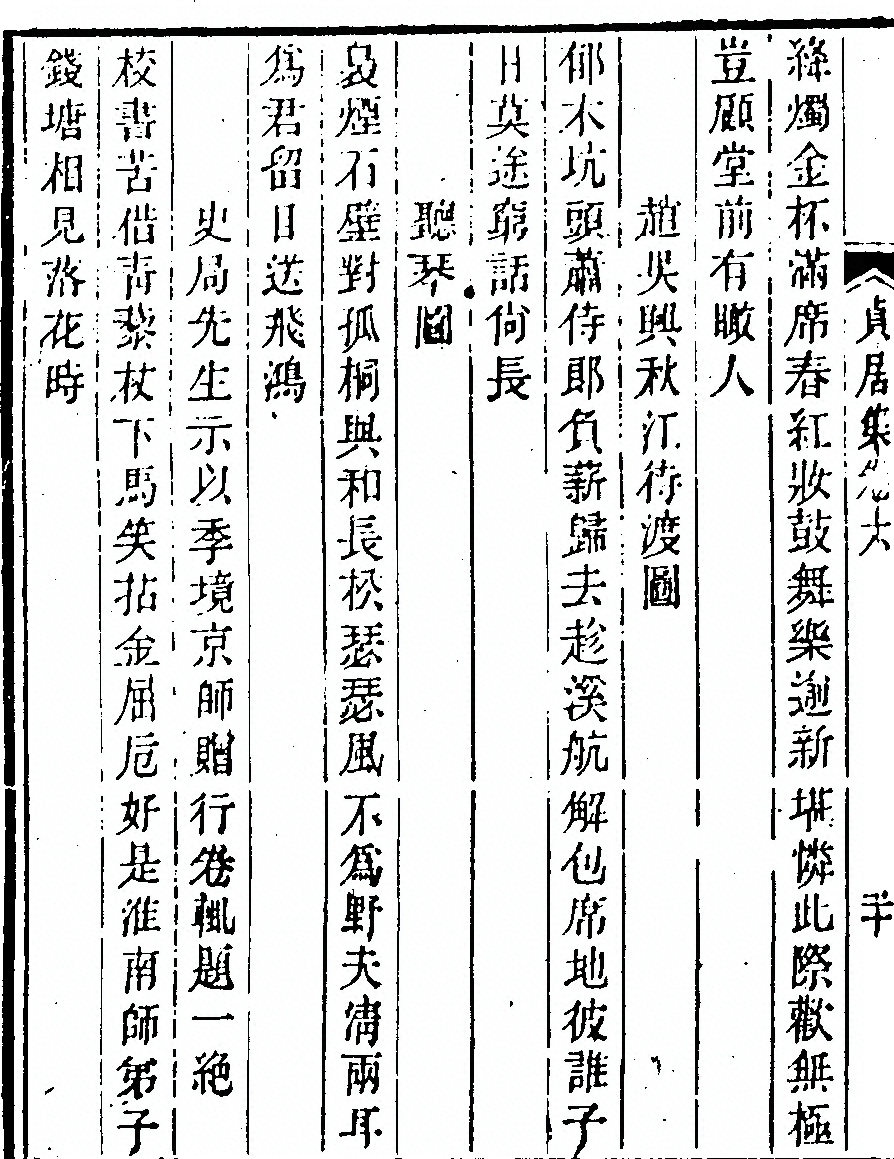 貞居集卷六
二十
絳燭金杯滿席春紅妝鼓舞樂迎新堪憐此際歡無極
豈顧堂前有瞰人
趙吳興秋江待渡圖
郁木坑頭蕭侍郎負薪歸去趁溪航解包席地彼誰子
日莫途窮話尙長
聽琴圖
裊煙石壁對孤桐與和長松瑟瑟風不爲野夫淸兩耳
爲君留目送飛鴻
史局先生示以季境京師贈行卷輒題一絶
校書苦借靑藜杖下馬笑拈金屈卮好是淮南師弟子
錢塘相見落花時